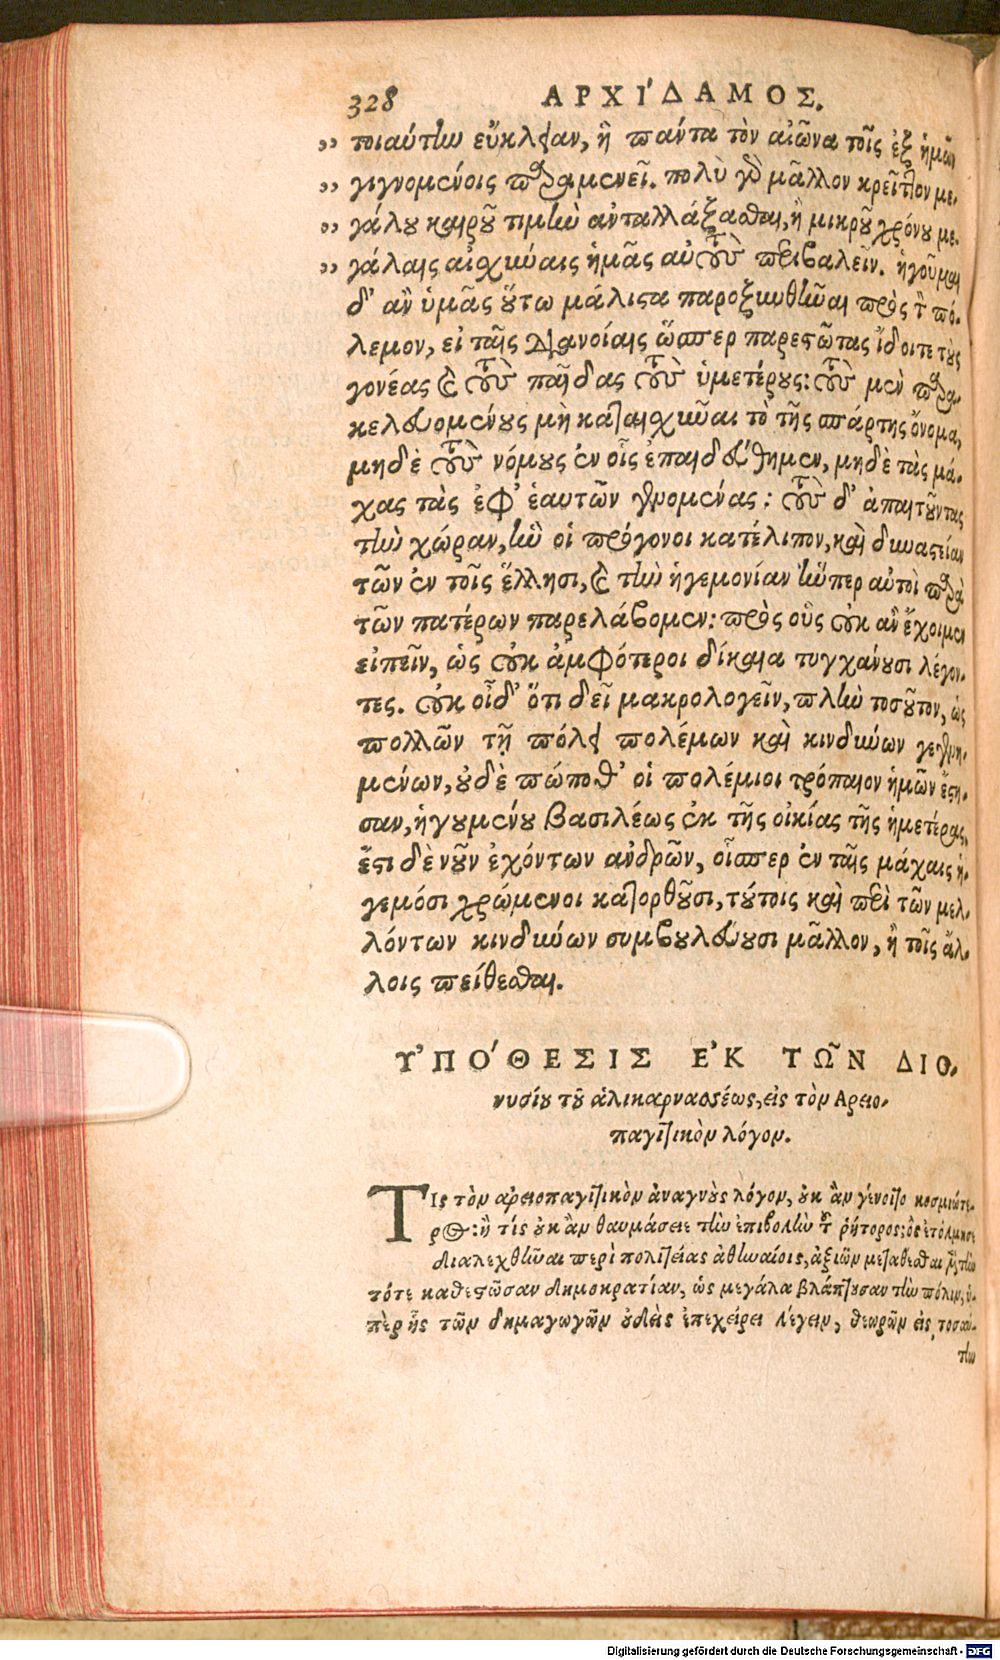 328 ΑΡΧΙ΄ΔΑΜΟΣ.
„ τοιαύτην εὔκλειαν, ἣ πάντα τὸν αἰῶνα τοῖς ἐξ ἡμῶν
„ γιγνομένοις παραμενεῖ. πολὺ γὰρ μᾶλλον κρεῖττον με-
„ γάλου καιροῦ τιμὴν ἀνταλλάξασθαι, ἢ μικροῦ χρόνου με-
„ γάλαις αἰσχύναις ἡμᾶς αὐτοὺς περιβαλεῖν. ἡγοῦμαι
δ' ἂν ὑμᾶς οὕτω μάλιστα παροξυνθῆναι πρὸς τὸν πό-
λεμον, εἰ ταῖς διανοίαις ὥσπερ παρεστῶτας ἴδοιτε τοὺς
γονέας καὶ τοὺς παῖδας τοὺς ὑμετέρους: τοὺς μὲν παρα-
κελευομένους μὴ καταισχῦναι τὸ τῆς σπάρτης ὄνομα,
μηδὲ τοὺς νόμους ἐν οἷς ἐπαιδεύθημεν, μηδὲ τὰς μά-
χας τὰς ἐφ' ἑαυτῶν γενομένας: τοὺς δ' ἀπαιτοῦντας
τὴν χώραν, ἣν οἱ πρόγονοι κατέλιπον, καὶ δυναστείαν
τῶν ἐν τοῖς ἕλλησι, καὶ τὴν ἡγεμονίαν ἥνπερ αὐτοὶ παρὰ
τῶν πατέρων παρελάβομεν: πρὸς οὓς οὐκ ἂν ἔχοιμεν
εἰπεῖν, ὡς οὐκ ἀμφότεροι δίκαια τυγχάνουσι λέγον-
τες. οὐκ οἶδ' ὅτι δεῖ μακρολογεῖν, πλὴν τοσοῦτον, ὡς
πολλῶν τῇ πόλει πολέμων καὶ κινδύνων γεγενη-
μένων, οὐδὲ πώποθ' οἱ πολέμιοι τρόπαιον ἡμῶν ἔστη-
σαν, ἡγουμένου βασιλέως ἐκ τῆς οἰκίας τῆς ἡμετέρας,
ἔστι δὲ νοῦν ἐχόντων ἀνδρῶν, οἷσπερ ἐν ταῖς μάχαις ἡ-
γεμόσι χρώμενοι κατορθοῦσι, τούτοις καὶ περὶ τῶν μελ-
λόντων κινδύνων συμβουλεύουσι μᾶλλον, ἢ τοῖς ἄλ-
λοις πείθεσθαι.
ΥʼΠΟ΄ΘΕΣΙΣ ΕʼΚ ΤΩ͂Ν ΔΙΟ-
νυσίου τοῦ ἁλικαρνασσέως, εἰς τὸν Αρειο-
παγιτικὸν λόγον.
ΤΙς τὸν ἀρειοπαγιτικὸν ἀναγνοὺς λόγον, οὐκ ἂν γένοιτο κοσμιώτε-
ρος: ἢ τίς οὐκ ἂν θαυμάσειε τὴν ἐπιβολὴν τοῦ ῥήτορος; ὃς ἐτόλμησε
διαλεχθῆναι περὶ πολιτείας ἀθηναίοις, ἀξιῶν μεταθέσθαι μὲν τὴν
τότε καθεστῶσαν δημοκρατίαν, ὡς μεγάλα βλάπτουσαν τὴν πόλιν, ὑ-
πὲρ ἧς τῶν δημαγωγῶν οὐδεὶς ἐπεχείρει λέγειν, θεωρῶν εἰς τοσαύ-
την
Digitalisierung gefördert durch die Deutsche Forschungsgemeinschaft - DFG